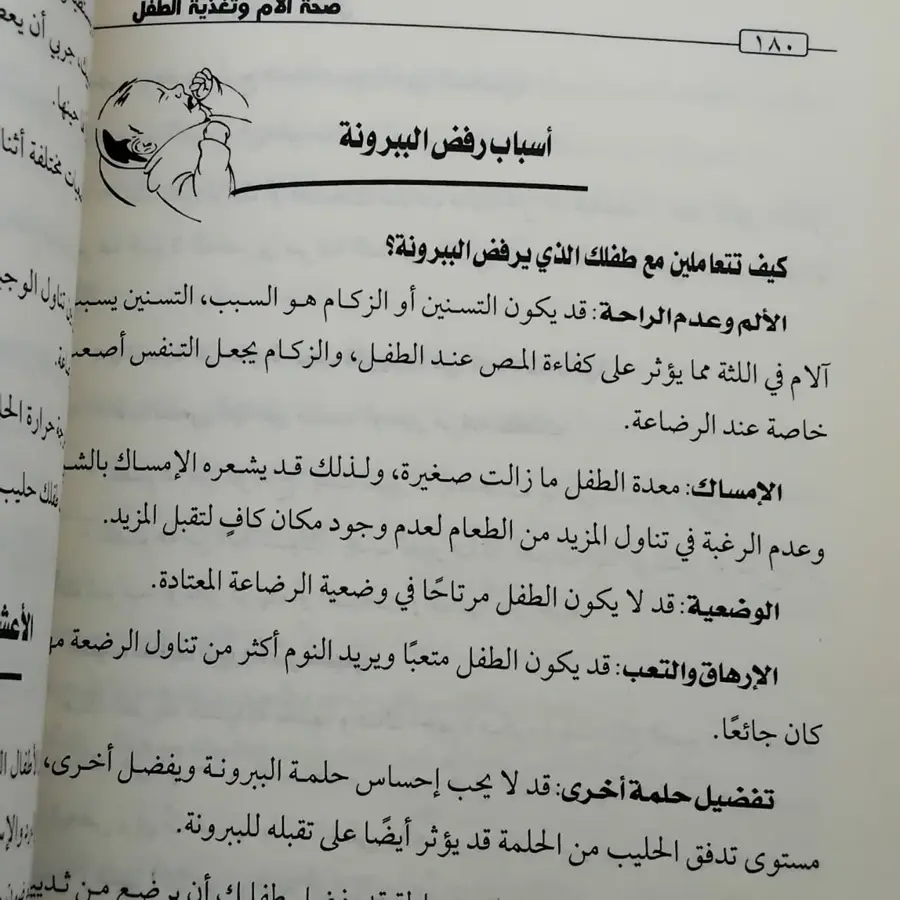 صحة الأم وتغذية الطفل
١٨٠
أسباب رفض الببرونة
كيف تتعاملين مع طفلك الذي يرفض الببرونة؟
الألم وعدم الراحة: قد يكون التسنين أو الزكام هو السبب، التسنين يسبب
آلام في اللثة مما يؤثر على كفاءة المص عند الطفل، والزكام يجعل التنفس أصعب
خاصة عند الرضاعة.
الإمساك: معدة الطفل ما زالت صغيرة، ولذلك قد يشعره الإمساك
وعدم الرغبة في تناول المزيد من الطعام لعدم وجود مكان كافٍ لتقبل المزيد.
الوضعية: قد لا يكون الطفل مرتاحًا في وضعية الرضاعة المعتادة.
الإرهاق والتعب: قد يكون الطفل متعبًا ويريد النوم أكثر من تناول الرضعة
كان جائعًا.
تفضيل حلمة أخرى: قد لا يحب إحساس حلمة الببرونة ويفضل أخرى،
مستوى تدفق الحليب من الحلمة قد يؤثر أيضًا على تقبله للببرونة.
طفلك أن يرضع من
جربي أن
مختلفة أثناء
تناول
حرارة
حليب